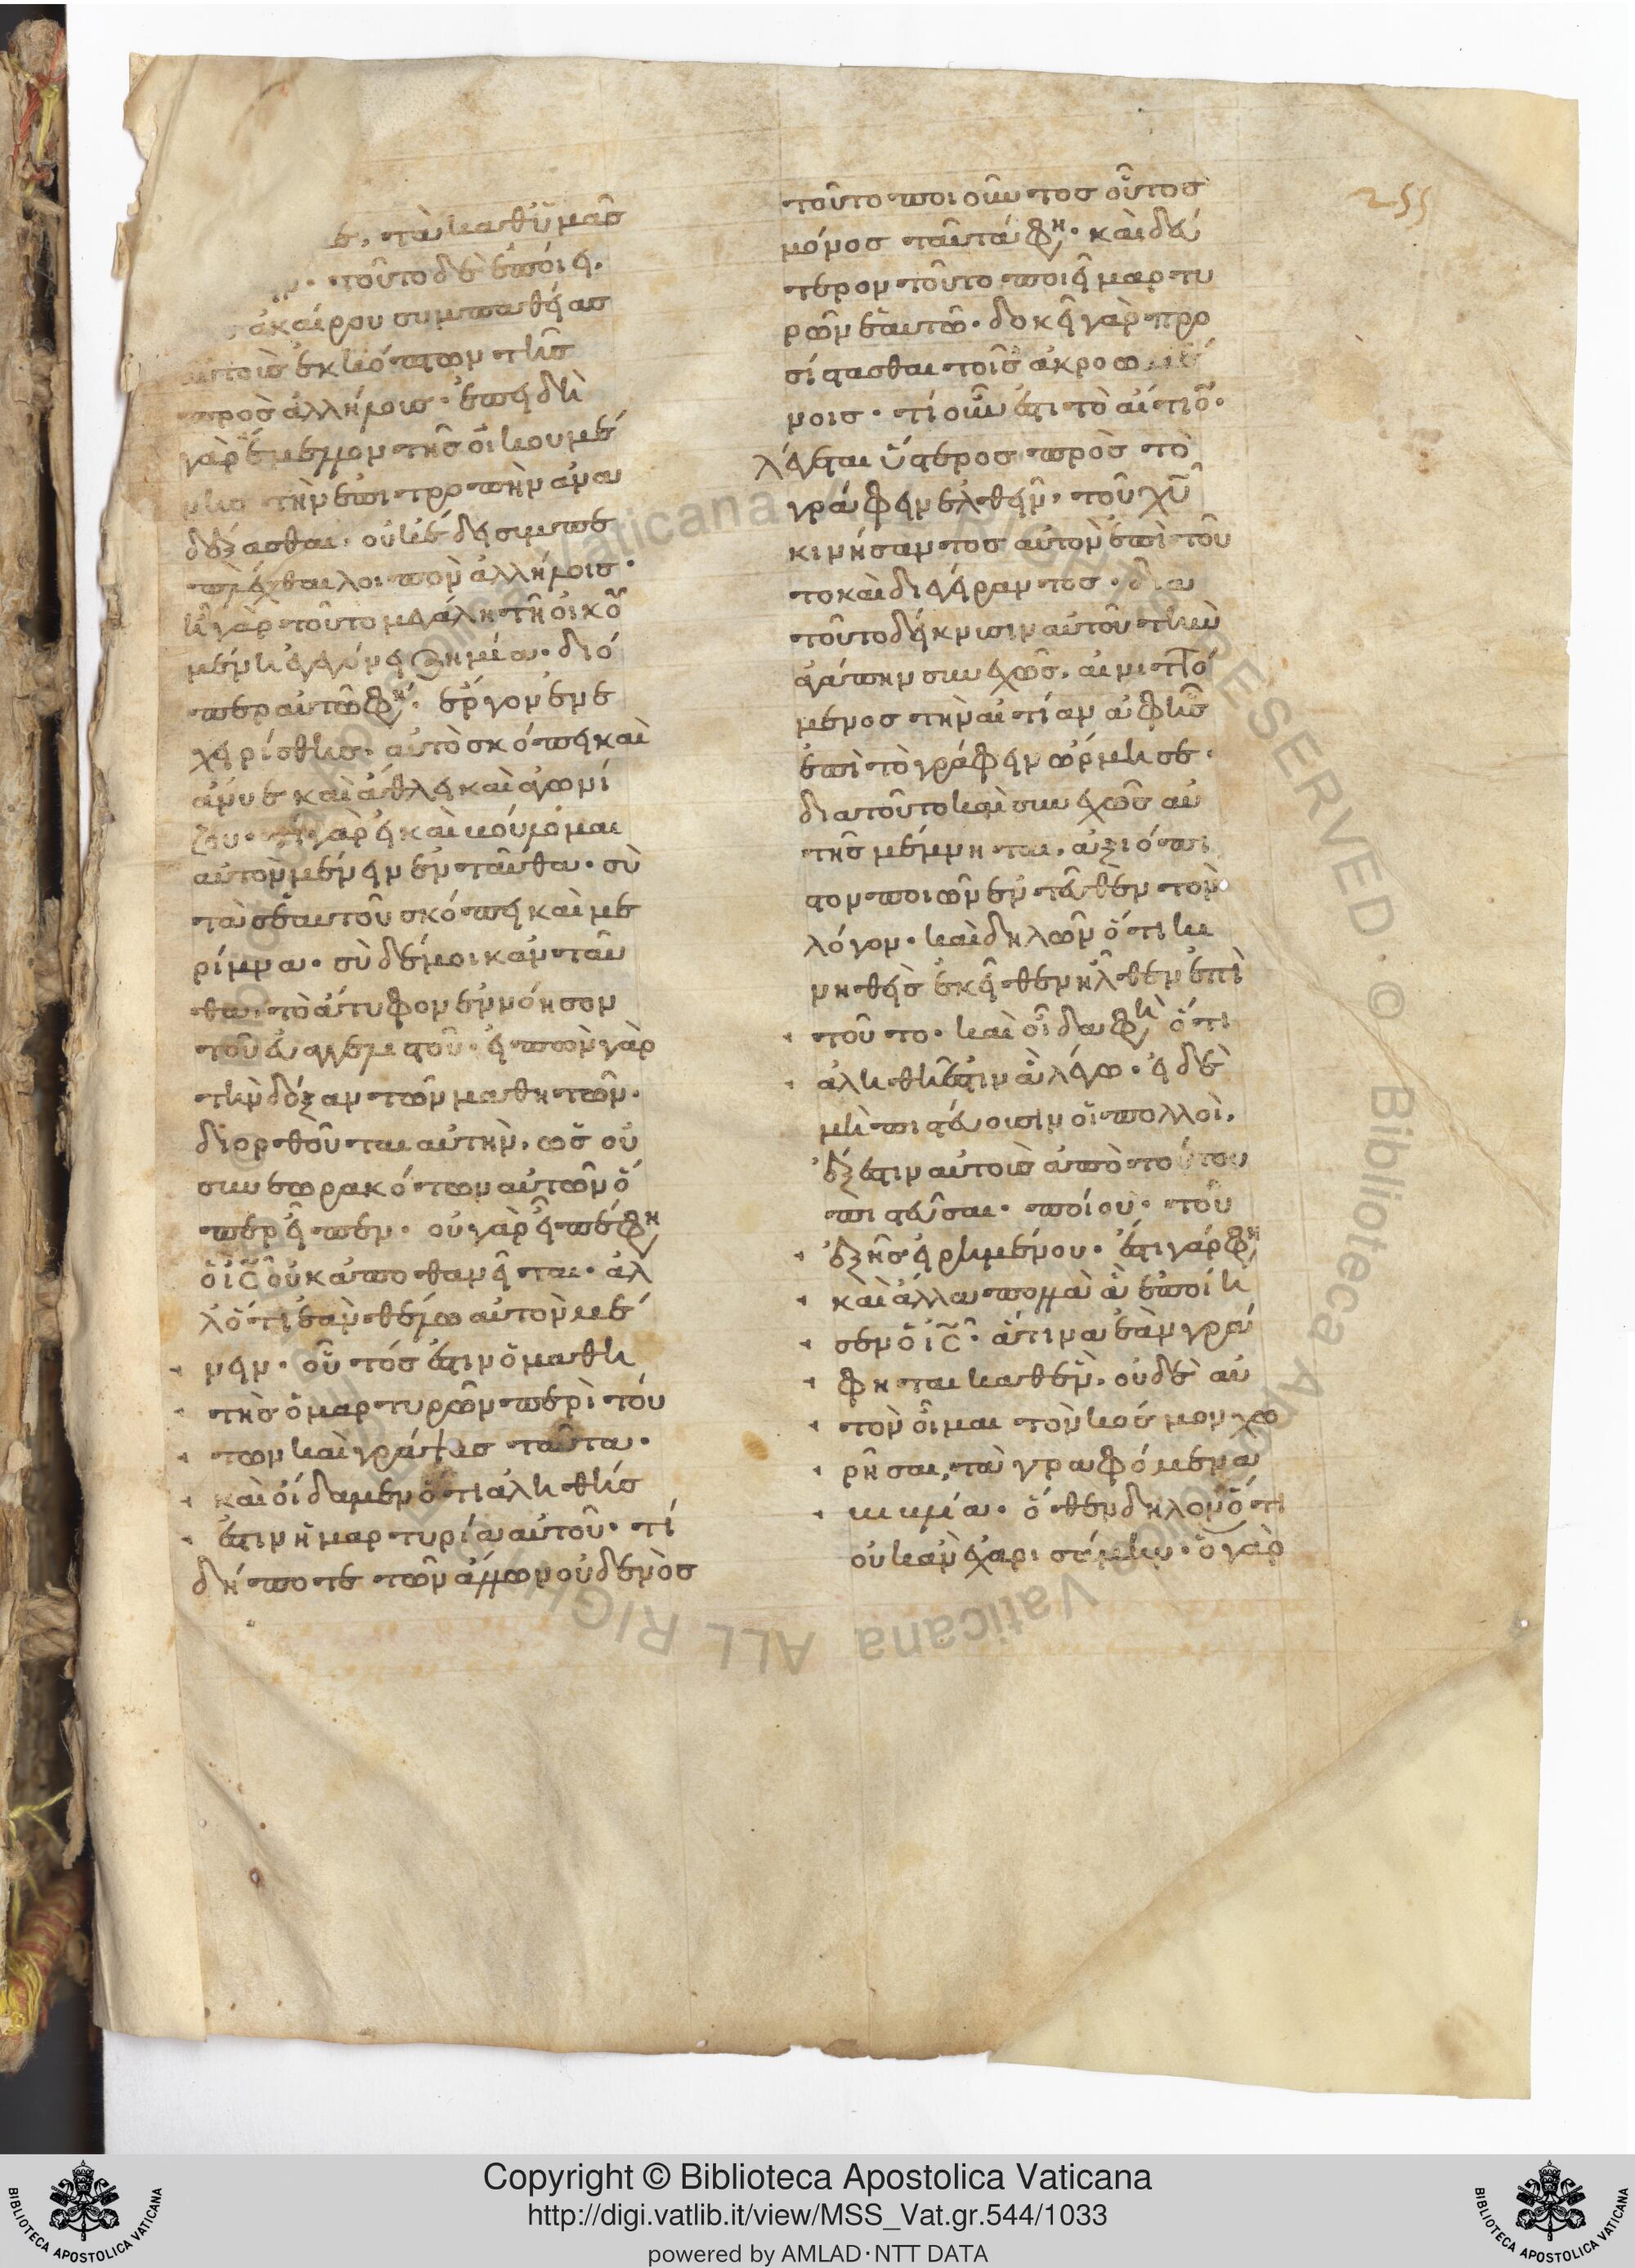 255
τὰ καθ' ὑμᾶς
τοῦτο δὲ ἐποίει,
ἀκαίρου συμπαθείας
αὐτοὺς ἐκκόπτων τῆς
πρὸς ἀλλήλους· ἐπειδὴ
γὰρ ἔμελλον τῆς οἰκουμέ
νης τὴν ἐπιτροπὴν ἀνα
δέξασθαι, οὐκ ἔδει συμπε
πλέχθαι λοιπὸν ἀλλήλοις·
ἦ γὰρ τοῦτο μεγάλη τῇ οἰκου
μένη ἐγεγόνει ζημία. διό
περ αὐτῷ φη· ἔργον ἐνε
χειρίσθης· αὐτὸ σκόπει καὶ
ἄνυε καὶ ἄθλει καὶ ἀγωνί
ζου· τί γὰρ εἰ καὶ βούλομαι
αὐτὸν μένειν ἐνταῦθα· σὺ
τὰ σεαυτοῦ σκόπει καὶ με
ρίμνα· σὺ δέ μοι κἀνταῦ
θα, τὸ ἄτυφον ἐννόησον
τοῦ εὐαγγελιστοῦ· εἰπὼν γὰρ
τὴν δόξαν τῶν μαθητῶν.
διορθοῦται αὐτὴν, ὡς οὐ
συνεωρακότων αὐτῶν ὅ
περ εἶπεν· οὐ γὰρ εἶπέ φη
ὁ ισ οὐκ ἀποθανεῖται· ἀλ
λ' ὅτι ἐὰν θέλω αὐτὸν μέ
νειν· οὗτός ἐστιν ὁ μαθη
τὴς ὁ μαρτυρῶν περὶ τού
των καὶ γράψας ταῦτα·
καὶ οἴδαμεν ὅτι ἀληθής
ἐστιν ἡ μαρτυρία αὐτοῦ· τί
δήποτε τῶν ἄλλων οὐδενὸς
τοῦτο ποιοῦντος οὗτος
μόνος ταῦτά φη· καὶ δεύ
τερον τοῦτο ποιεῖ μαρτυ
ρῶν ἑαυτῷ· δοκεῖ γὰρ προ
σίστασθαι τοῖς ἀκροωμέ
νοις· τί οὖν ἐστι τὸ αἴτιον·
λέγεται ὕστερος πρὸς τὸ
γράφειν ἐλθεῖν, τοῦ χυ
κινήσαντος αὐτὸν ἐπὶ τοῦ
το καὶ διεγείραντος· διὰ
τοῦτο δείκνυσιν αὐτοῦ τὴν
ἀγάπην συνεχῶς, αἰνιττό
μενος τὴν αἰτίαν ἀφ' ἧς
ἐπὶ τὸ γράφειν ὥρμησε·
διὰ τοῦτο καὶ συνεχῶς αὐ
τῆς μέμνηται, ἀξιόπι
στον ποιῶν ἐντεῦθεν τὸν
λόγον· καὶ δηλῶν ὅτι κι
νηθεὶς ἐκεῖθεν ἦλθεν ἐπὶ
τοῦτο· καὶ οἶδα φη ὅτι
ἀληθῆ ἐστιν ἃ λέγω· εἰ δὲ
μὴ πιστεύουσιν οἱ πολλοὶ,
ἔξεστιν αὐτοῖς ἀπὸ τούτου
πιστεῦσαι· ποίου· τοῦ
ἑξῆς εἰρημένου· ἔστι γάρ φη
καὶ ἄλλα πολλὰ ἃ ἐποίη
σεν ὁ ισ· ἅτινα ἐὰν γρά
φηται καθ' ἓν, οὐδὲ αὐ
τὸν οἶμαι τὸν κόσμον χω
ρῆσαι, τὰ γραφόμενα
βιβλία· ὅθεν δῆλον ὅτι
οὐκ ἂν ἐχαρισάμην· ὁ γὰρ
Copyright © Biblioteca Apostolica Vaticana
http://digi.vatlib.it/view/MSS_Vat.gr.544/1033
powered by AMLAD·NTT DATA